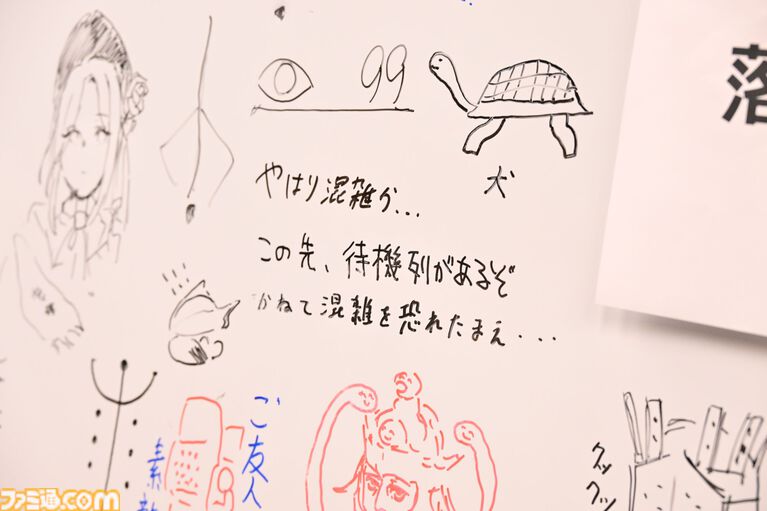 99
犬
やはり混雑か...
この先、待機列があるぞ
かねて混雑を恐れたまえ...
ご友人
素敵
クックッ
落
ファミ通.com